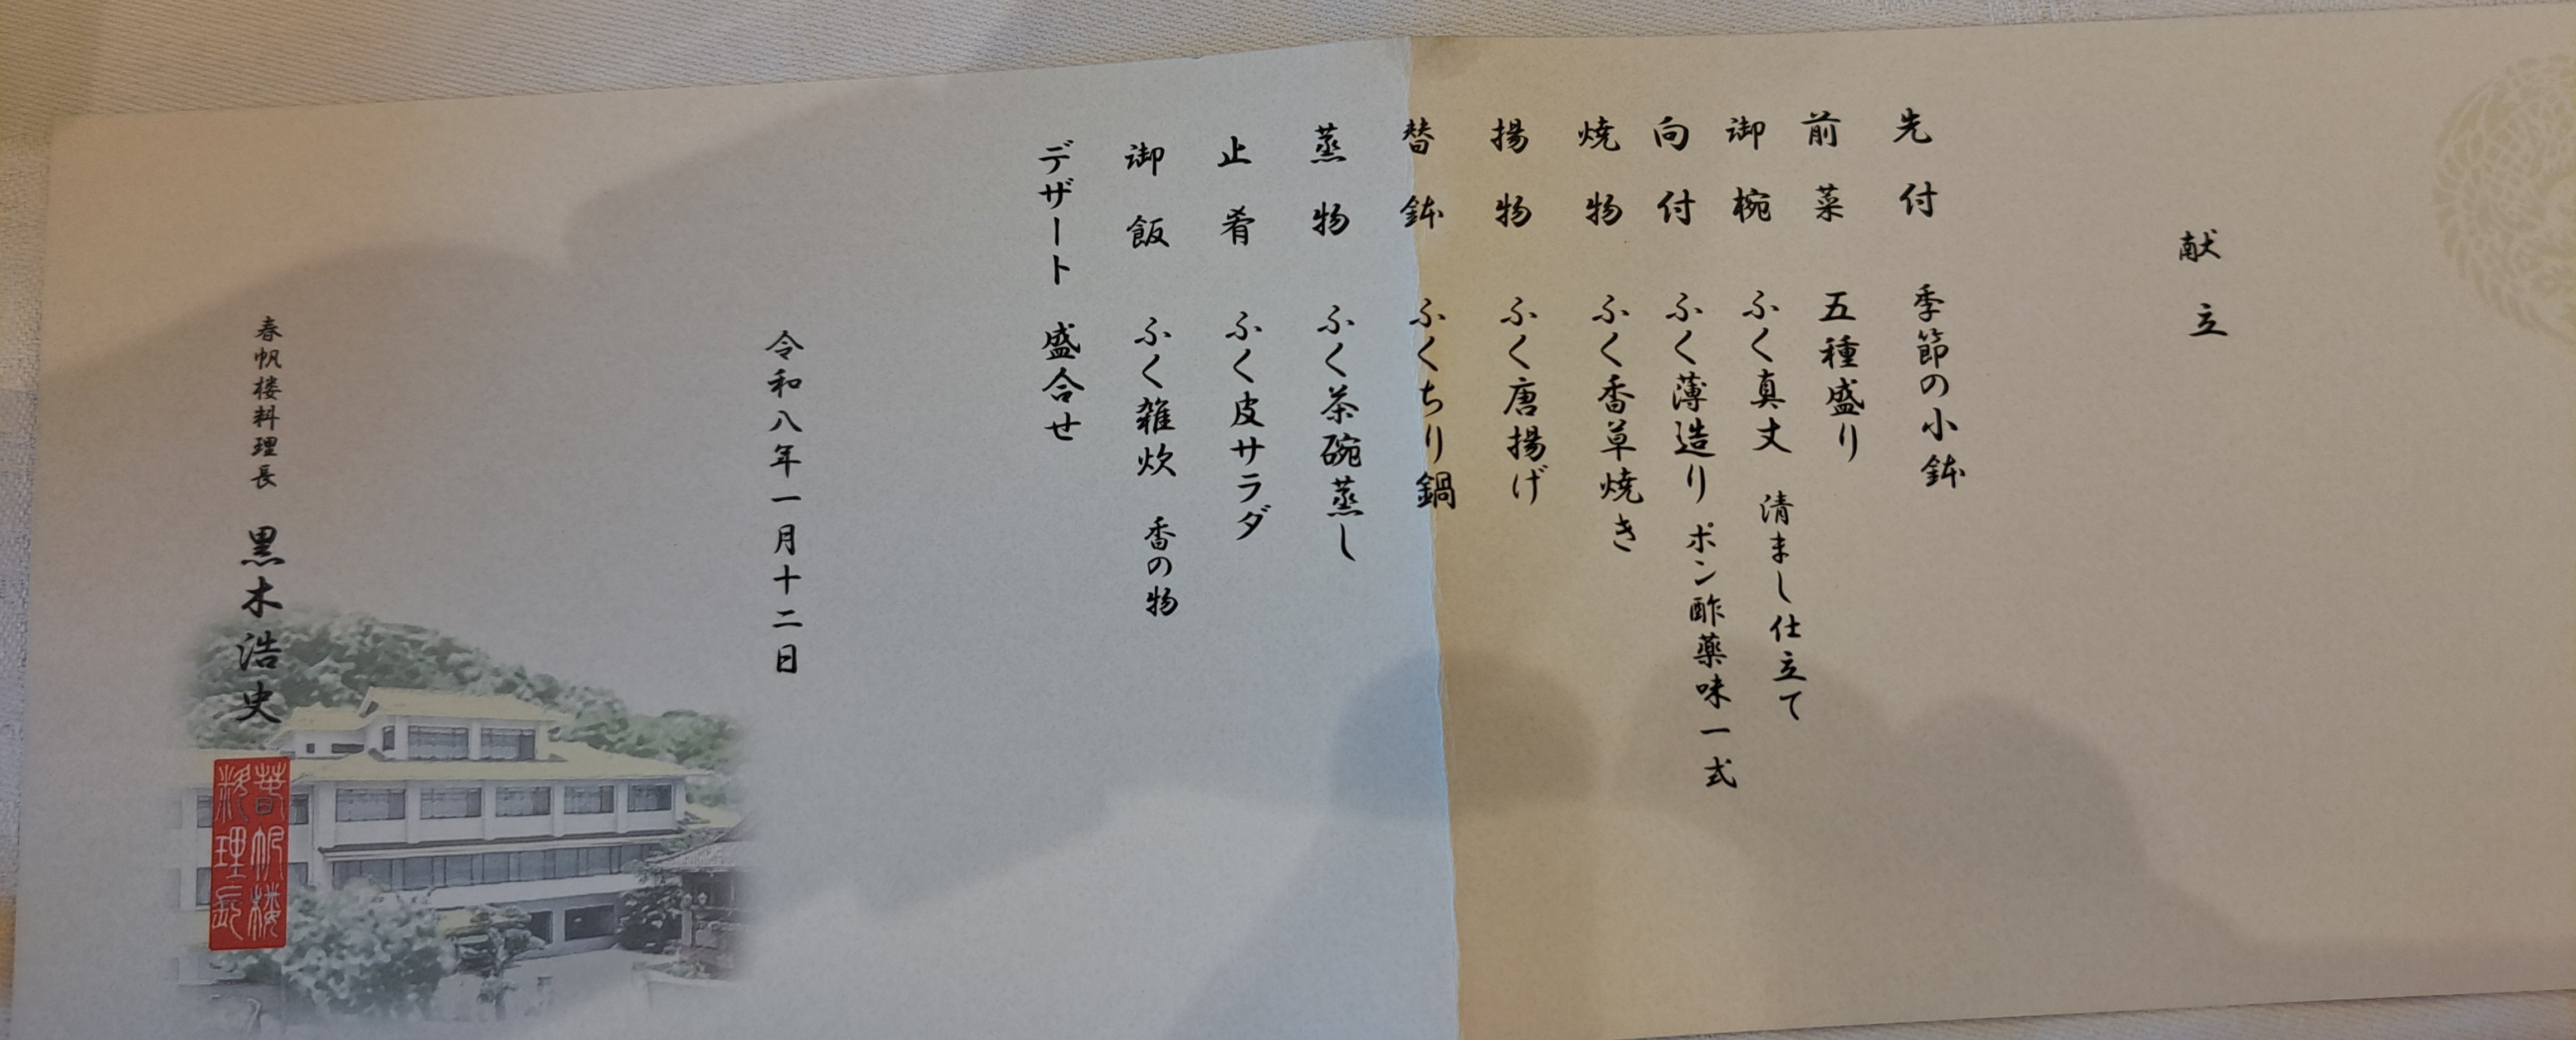 献立
先付 季節の小鉢
前菜 五種盛り
御椀 ふく真丈 清まし仕立て
向付 ふく薄造り ポン酢薬味一式
焼物 ふく香草焼き
揚物 ふく唐揚げ
替鉢 ふくちり鍋
蒸物 ふく茶碗蒸し
止肴 ふく皮サラダ
御飯 ふく雑炊 香の物
デザート 盛合せ
令和八年一月十二日
春帆楼料理長 黒木浩史
春帆楼
料理長